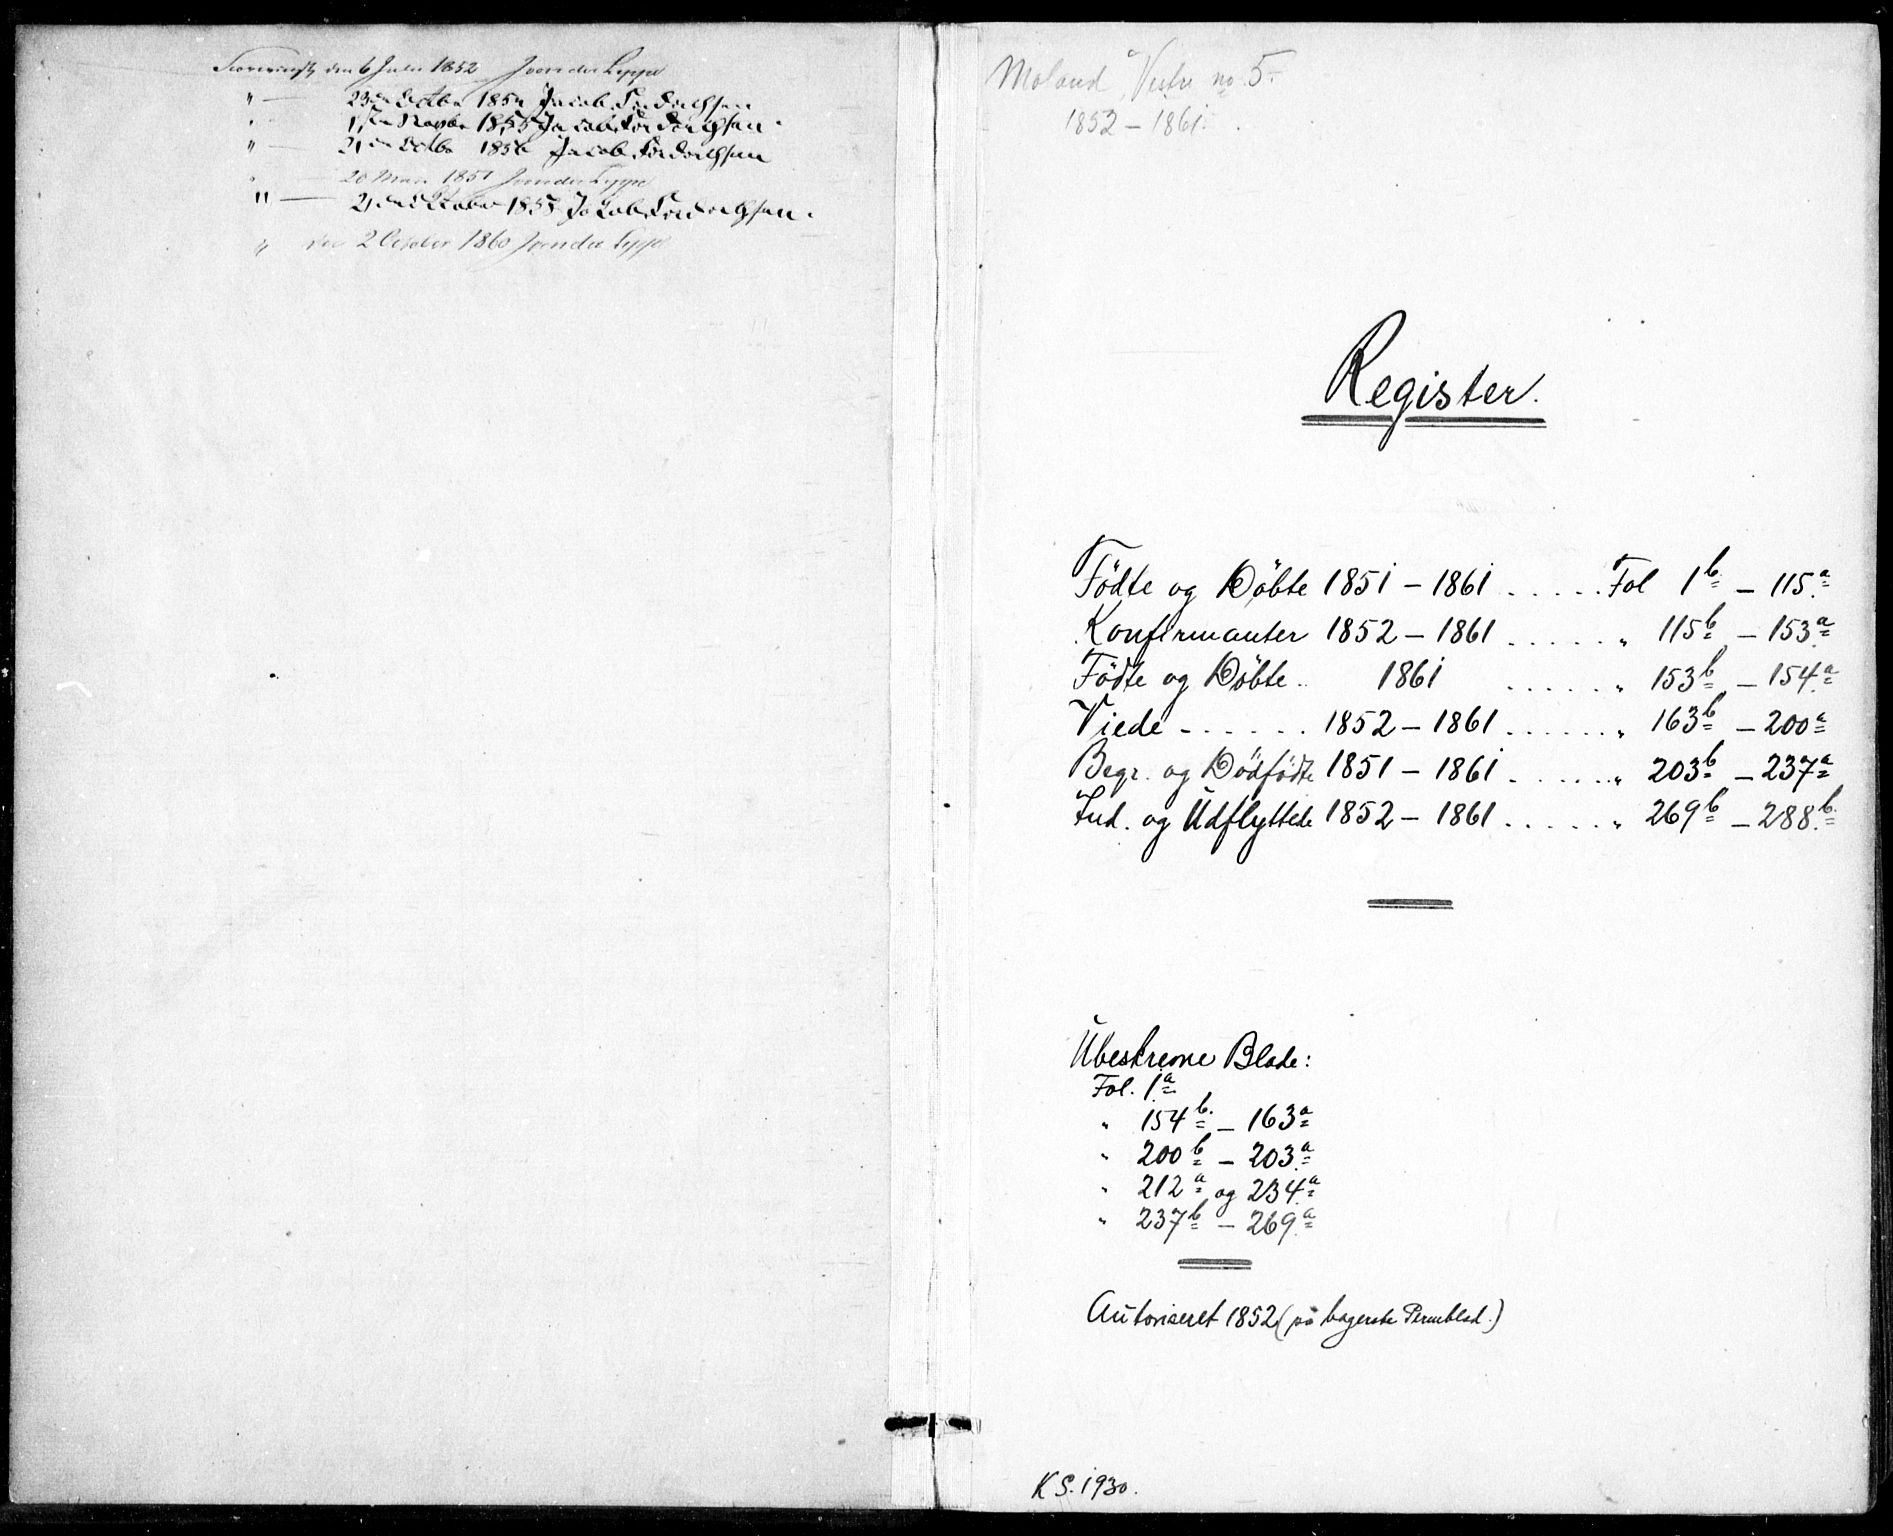 den 6 Juli 1852
" — 23 Octbr 185 Jacob
" 1 Novbr 1855 Jacob
" — 21 Octbr 1856 Jacob
20 Mai 185
" — 21 October 185 Jacob
" den 2 October 1860
Moland Vestre no 5.
1852 – 1861.
Register.
Födte og Döbte 1851 – 1861 ..... Fol 1b – 115a
Konfirmanter 1852 – 1861 ..... " 115b – 153a
Födte og Döbte .. 1861 ..... " 153b – 154a
Viede - ..... 1852 – 1861 ..... " 163b – 200a
Begr. og Dödfödte 1851 – 1861 ..... " 203b – 237a
Ind. og Udflyttede 1852 – 1861 ..... " 269b – 288b
Ubeskrevne Blade:
Fol. 1a
" 154b – 163a
" 200b – 203a
" 212a og 234a
" 237b – 269a
Autoriseret 1852 (på bagerste Permblad.)
K S. 1930.